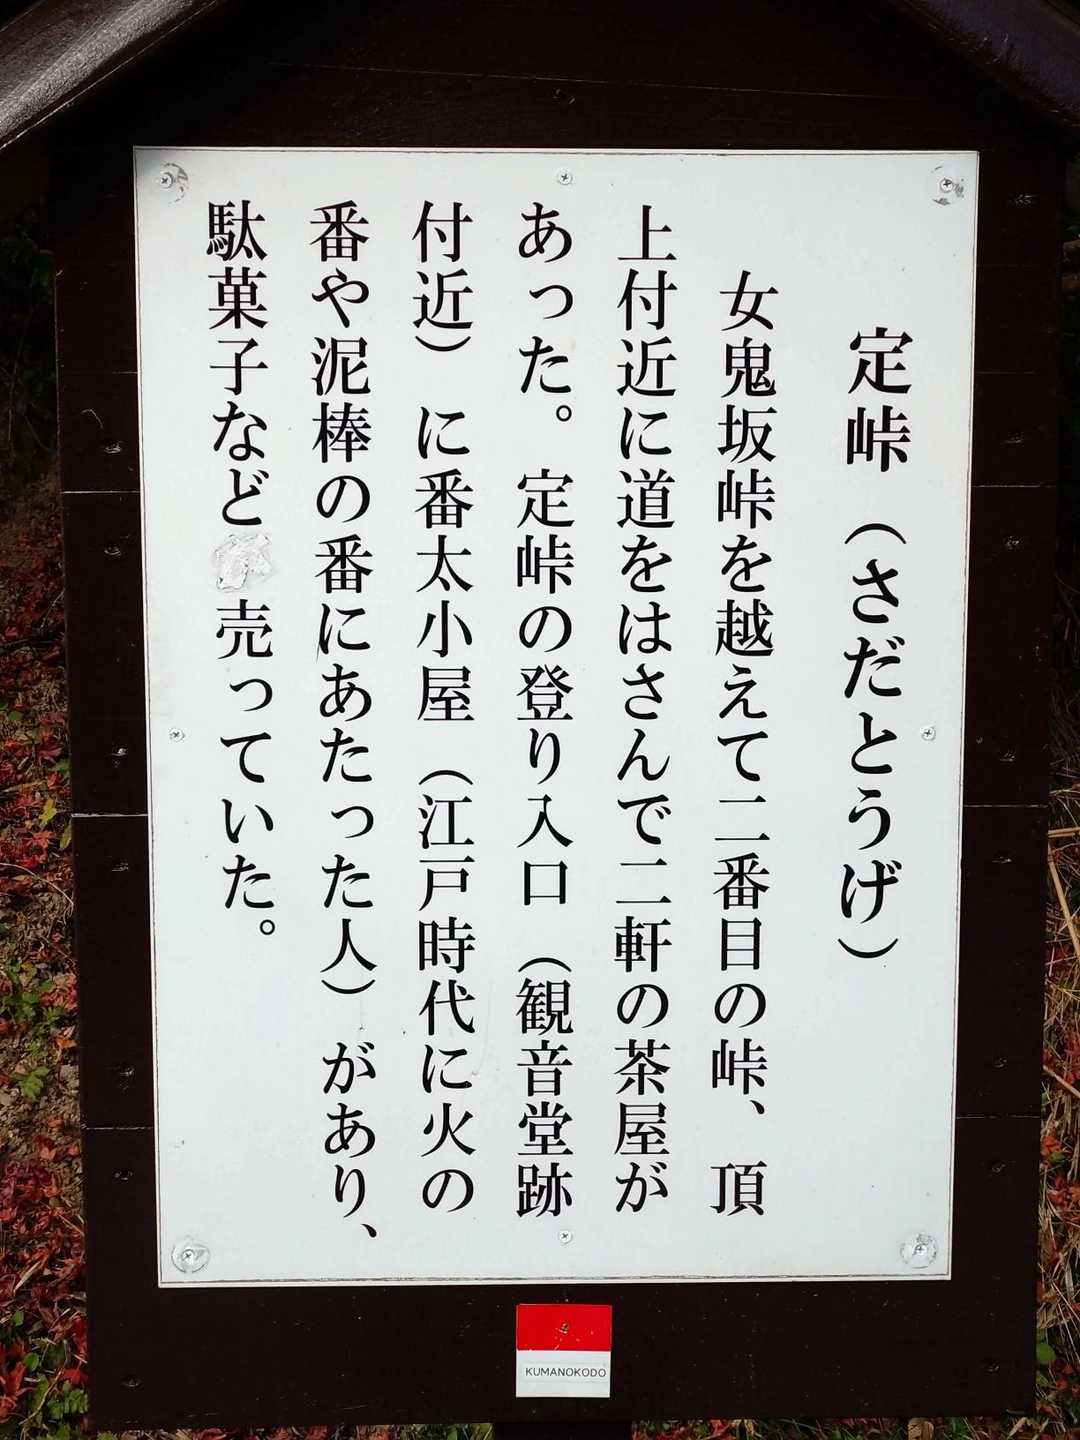 定峠（さだとうげ）
女鬼坂峠を越えて二番目の峠、頂
上付近に道をはさんで二軒の茶屋が
あった。定峠の登り入口（観音堂跡
付近）に番太小屋（江戸時代に火の
番や泥棒の番にあたった人）があり、
駄菓子など売っていた。
KUMANOKODO